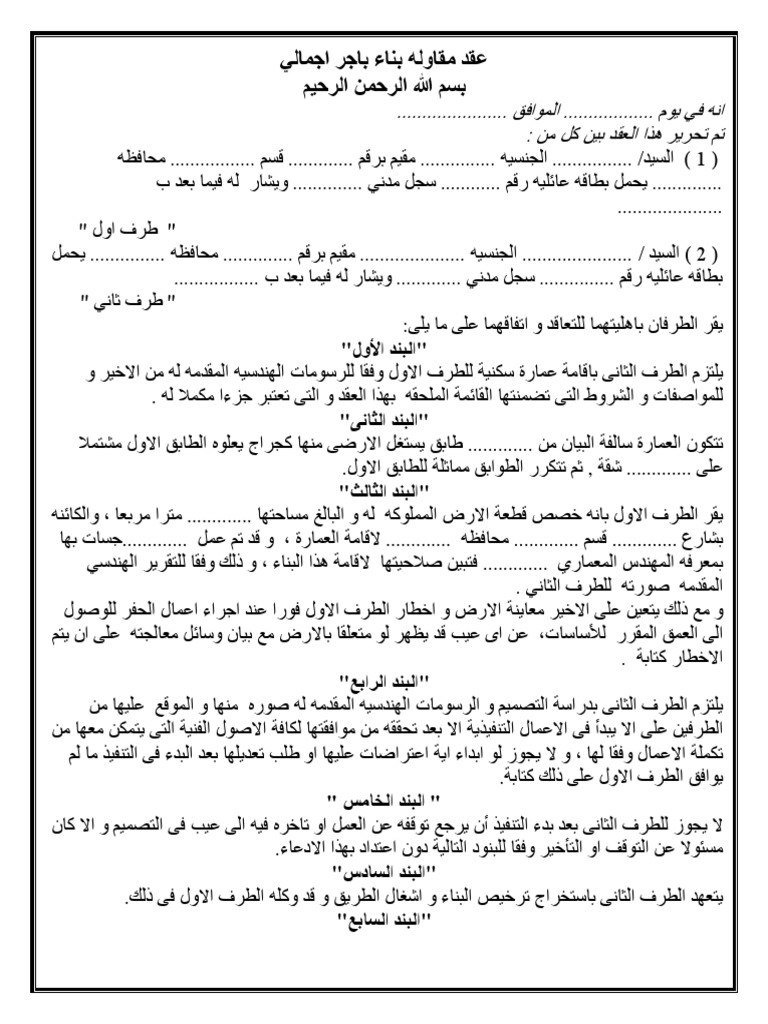 عقد مقاوله بناء باجر اجمالي
بسم الله الرحمن الرحيم
انه في يوم .................. الموافق ......................
تم تحرير هذا العقد بين كل من :
( 1 ) السيد/ ................ الجنسيه ............... مقيم برقم ............. قسم ................. محافظه
.............. يحمل بطاقه عائليه رقم ............ سجل مدني .............. ويشار له فيما بعد ب
.....................
" طرف اول "
( 2 ) السيد / ...................... الجنسيه ..................... مقيم برقم .............. محافظه ............... يحمل
بطاقه عائليه رقم ............... سجل مدني ............. ويشار له فيما بعد ب .................
" طرف ثاني "
يقر الطرفان باهليتهما للتعاقد و اتفاقهما على ما يلى:
"البند الأول"
يلتزم الطرف الثانى باقامة عمارة سكنية للطرف الاول وفقا للرسومات الهندسيه المقدمه له من الاخير و
للمواصفات و الشروط التى تضمنتها القائمة الملحقه بهذا العقد و التى تعتبر جزءا مكملا له .
"البند الثانى"
تتكون العمارة سالفة البيان من ............. طابق يستغل الارضى منها كجراج يعلوه الطابق الاول مشتملا
على ............. شقة , ثم تتكرر الطوابق مماثلة للطابق الاول.
"البند الثالث"
يقر الطرف الاول بانه خصص قطعة الارض المملوكه له و البالغ مساحتها ............. مترا مربعا ، والكائنه
بشارع ............. قسم ............. محافظه ............. لاقامة العمارة ، و قد تم عمل .............جسات بها
بمعرفه المهندس المعماري ............. فتبين صلاحيتها لاقامة هذا البناء ، و ذلك وفقا للتقرير الهندسي
المقدمه صورته للطرف الثاني .
و مع ذلك يتعين على الاخير معاينة الارض و اخطار الطرف الاول فورا عند اجراء اعمال الحفر للوصول
الى العمق المقرر للأساسات، عن اى عيب قد يظهر لو متعلقا بالارض مع بيان وسائل معالجته على ان يتم
الاخطار كتابة .
"البند الرابع"
يلتزم الطرف الثانى بدراسة التصميم و الرسومات الهندسيه المقدمه له صوره منها و الموقع عليها من
الطرفين على الا يبدأ فى الاعمال التنفيذية الا بعد تحققه من موافقتها لكافة الاصول الفنية التى يتمكن معها من
تكملة الاعمال وفقا لها ، و لا يجوز لو ابداء اية اعتراضات عليها او طلب تعديلها بعد البدء فى التنفيذ ما لم
يوافق الطرف الاول على ذلك كتابة.
" البند الخامس "
لا يجوز للطرف الثانى بعد بدء التنفيذ أن يرجع توقفه عن العمل او تاخره فيه الى عيب فى التصميم و الا كان
مسئولا عن التوقف او التأخير وفقا للبنود التالية دون اعتداد بهذا الادعاء.
"البند السادس"
يتعهد الطرف الثانى باستخراج ترخيص البناء و اشغال الطريق و قد وكله الطرف الاول فى ذلك.
"البند السابع"